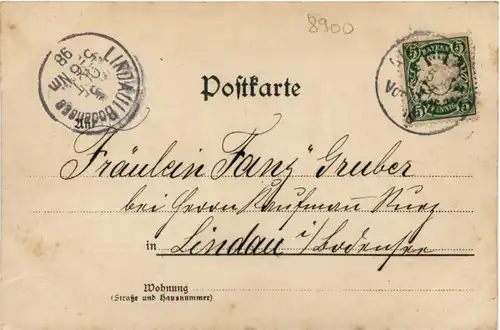 8900
LINDAU i. Bodensee
98
Nm
BAYERN
5 5
5 PFENNIG 5
Postkarte
An
Fräulein Fany Gruber
bei Herrn Kaufmann Kurz
in Lindau i/Bodensee
Wohnung
(Straße und Hausnummer)